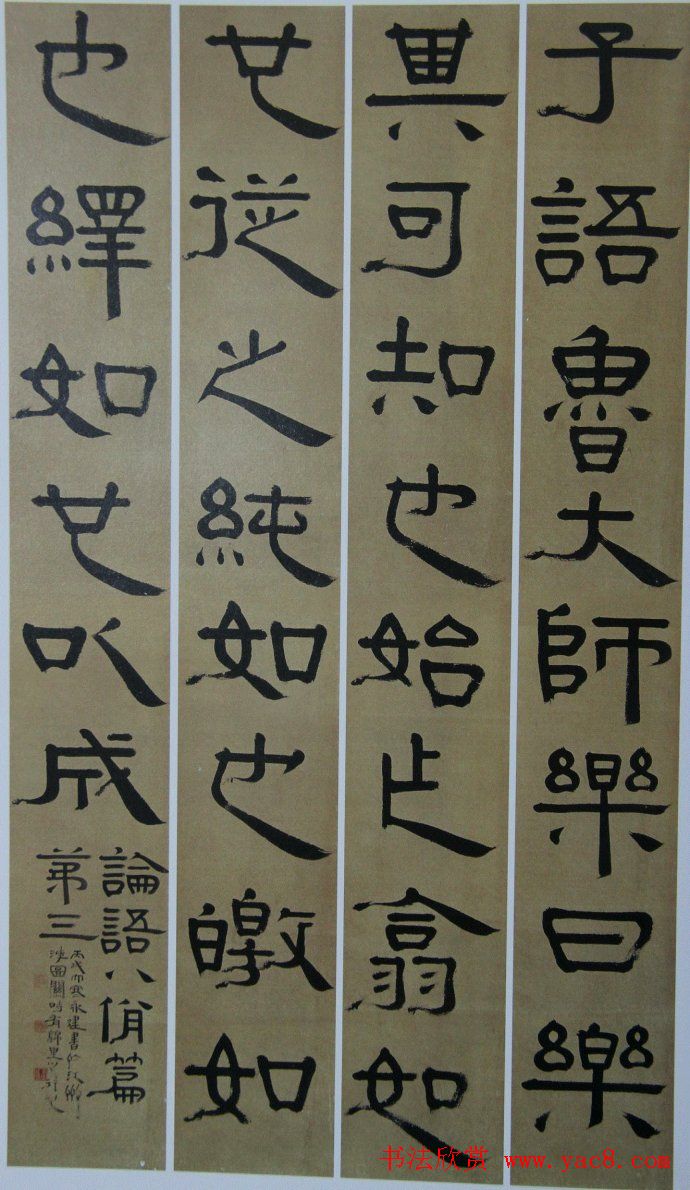 子語魯大師樂曰樂
其可知也始乍翕如
也從之純如也皦如
也繹如也以成
論語八佾篇
第三
丙戌大寒永建書於
书法欣赏 www.yac8.com